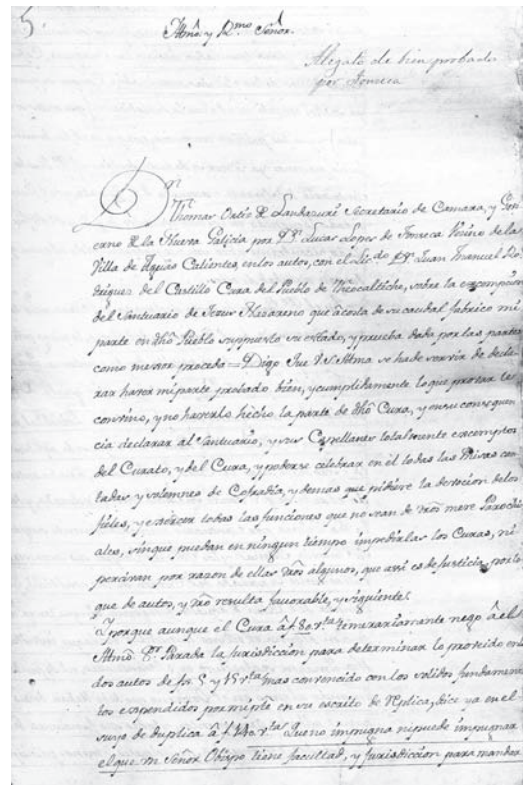 5.
Illmô. y R.mo Señor.
Alegato de bien probado
por Fonseca
Dn.
Thomas Ortiz de Landazuri Secretario de Camara, y Gov
ierno de la Nueva Galicia por Dn. Lucas Lopes de Fonseca Vecino de la
Villa de Aguas Calientes, en los autos, con el Lic.do Dn. Juan Manuel Ro
drigues del Castillo Cura del Pueblo de Theocaltiche, sobre la excempcion
del Santuario de Jesus Nazareno que à costa de su caudal fabrico mi
parte en dhô Pueblo suppuesto su estado, y prueba dada por las partes
como mexor proceda = Digo Que V.S. Illma. se ha de servir de decla
rar haver mi parte probado bien, y cumplidamente lo que provar le
convino, y no haverlo hecho la parte de dhô Cura, y en su consequen
cia declarar al Santuario, y sus Capellanes totalmente excemptos
del Curato, y del Cura, y poderse celebrar en el todas las Misas can
tadas y solemnes de Cofradia, y demas que pidiere la devocion de los
fieles, y exercer todas las funciones que no sean de drô mere Parochi
ales, sin que puedan en ningun tiempo impedirlas los Curas, ni
percivan por razon de ellas drôs algunos, que assi es de Justicia, por lo
que de autos, y drô resulta favorable, y siguiente.
Y porque aunque el Cura à f. 80 v.ta temerariamente nego à el
Illmô. Sr. Parada la Jurisdiccion para determinar lo proveido en
dos autos de fs. 5 y 45 v.ta mas convencido con los solidos fundamen
tos expendidos por mi parte en su escrito de Replica, dice ya en el
suyo de duplica à f. 140 v.ta Que no impugna ni puede impugnar
el que un Señor Obispo tiene facultad, y Jurisdiccion para mandar